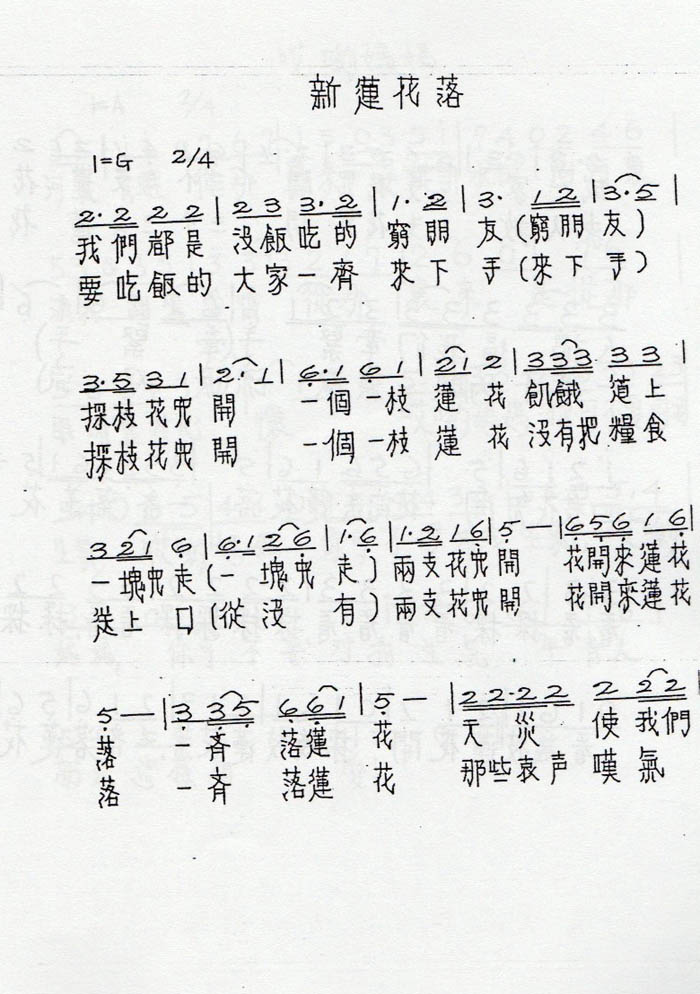 新蓮花落
1=G 2/4
2·2 2 2 | 2 3 3·2 | 1·2 3· 1 2 | 3·5 |
我們都是 沒飯吃的 窮朋 友(窮朋 友)
要吃飯的 大家一齊 來下 手(來下 手)
3·5 3 1 | 2·1 | 6·1 6 1 | 2 1 2 | 3 3 3 3 3 |
採枝花兒 開 一個一枝 蓮 花 飢餓 道上
採枝花兒 開 一個一枝 蓮 花 沒有把糧食
3 2 1 6 | 6·1 2 6 | 1·6 | 1·2 1 6 | 5 — | 6 5 6 1 6 |
一塊兒走(一 塊兒 走) 兩支花兒 開 花開來蓮花
從上 口(從 沒 有) 兩支花兒 開 花開來蓮花
5 — | 3 3 5 6 6 1 | 5 — | 2 2·2 2 2 2 2
落 一斉 落蓮 花 天 災 使 我們
落 一斉 落蓮 花 那些哀声 嘆 氣